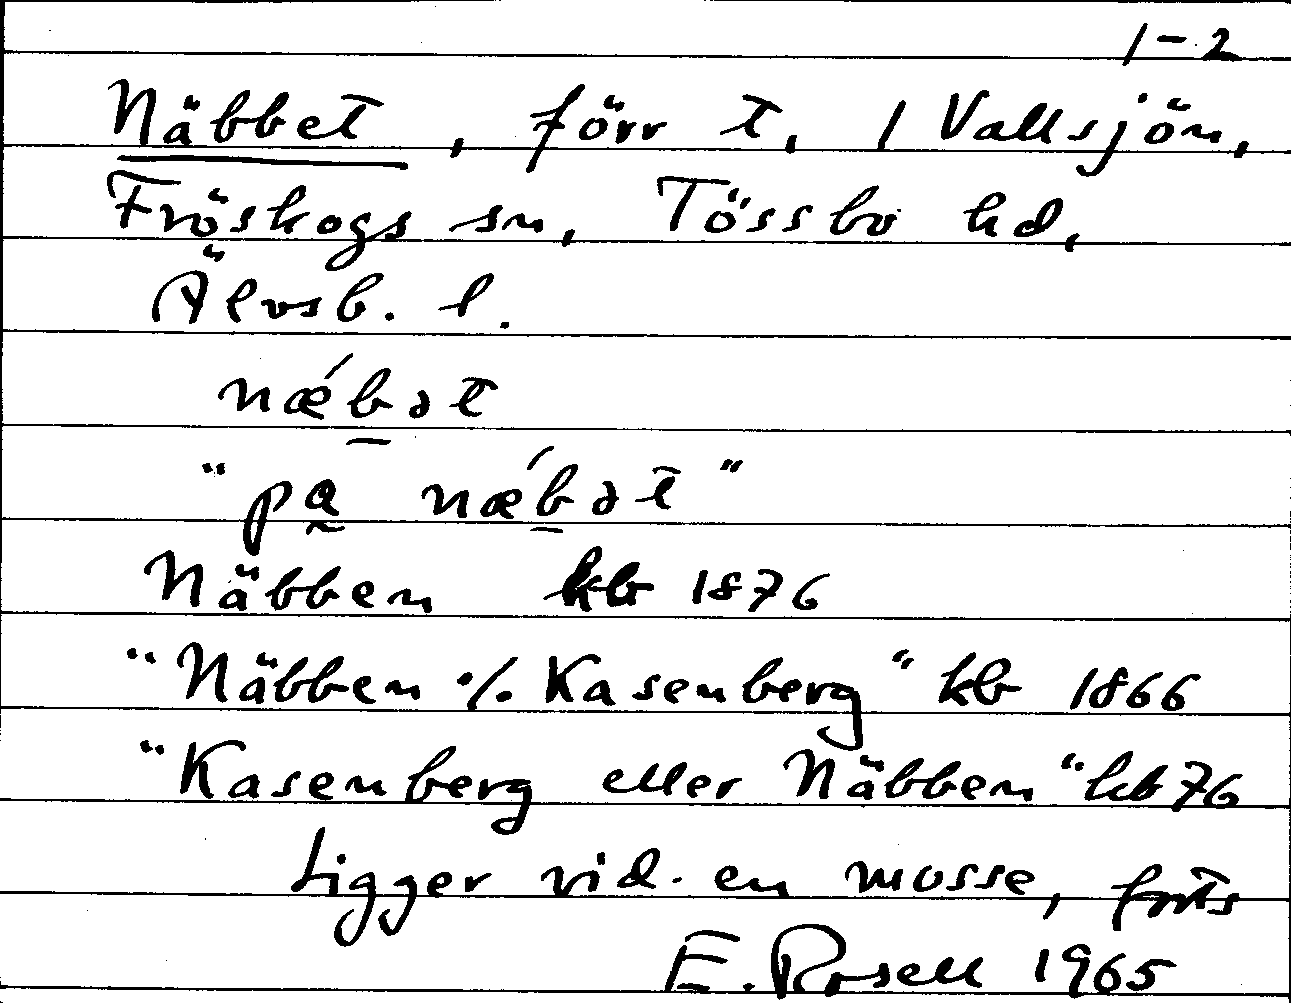 1-2
Näbbet, förr t, / Vallsjön,
Fröskogs sn, Tössbo hd,
Älvsb. l.
nǽbət
"pa nǽbət"
Näbben kb 1876
"Näbben ./. Kasenberg" kb 1866
"Kasenberg eller Näbben" kb 76
Ligger vid en mosse, forts
E. Rosell 1965